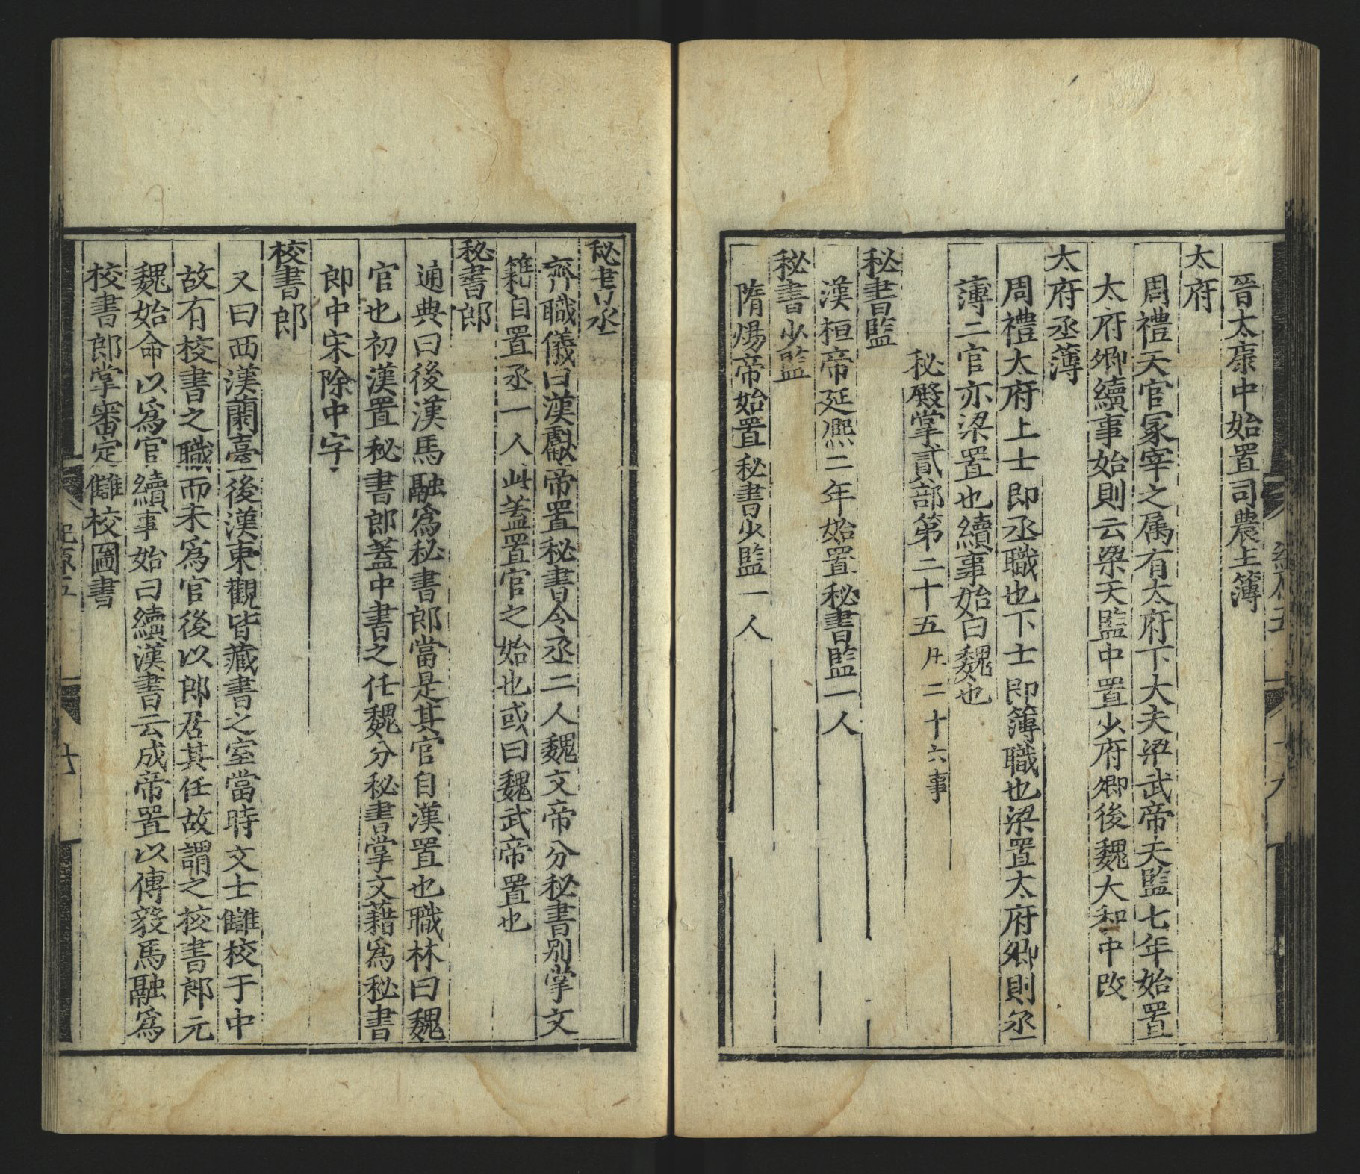 晉太康中始置司農主簿
太府
周禮天官冢宰之属有太府下大夫梁武帝天監七年始置
太府卿續事始則云梁天監中置少府卿後魏大和中改
太府丞薄
周禮大府上士即丞職也下士即簿職也梁置太府卿則丞
薄二官亦梁置也續事始曰魏也
秘殿掌貳部第二十五凡二十六事
秘書監
漢桓帝延熈二年始置秘書監一人
秘書少監
隋煬帝始置秘書少監一人
秘書丞
齊職儀曰漢獻帝置秘書令丞二人魏文帝分秘書别掌文
籍自置丞一人此蓋置官之始也或曰魏武帝置也
秘書郎
通典曰後漢馬融爲秘書郎當是其官自漢置也職林曰魏
官也初漢置秘書郎蓋中書之任魏分秘書掌文藉爲秘書
郎中宋除中字
校書郎
又曰西漢蘭臺後漢東觀皆藏書之室當時文士讎校于中
故有校書之職而未爲官後以郎居其任故謂之校書郎元
魏始命以爲官續事始曰續漢書云成帝置以傅毅馬融爲
校書郎掌審定讎校圖書